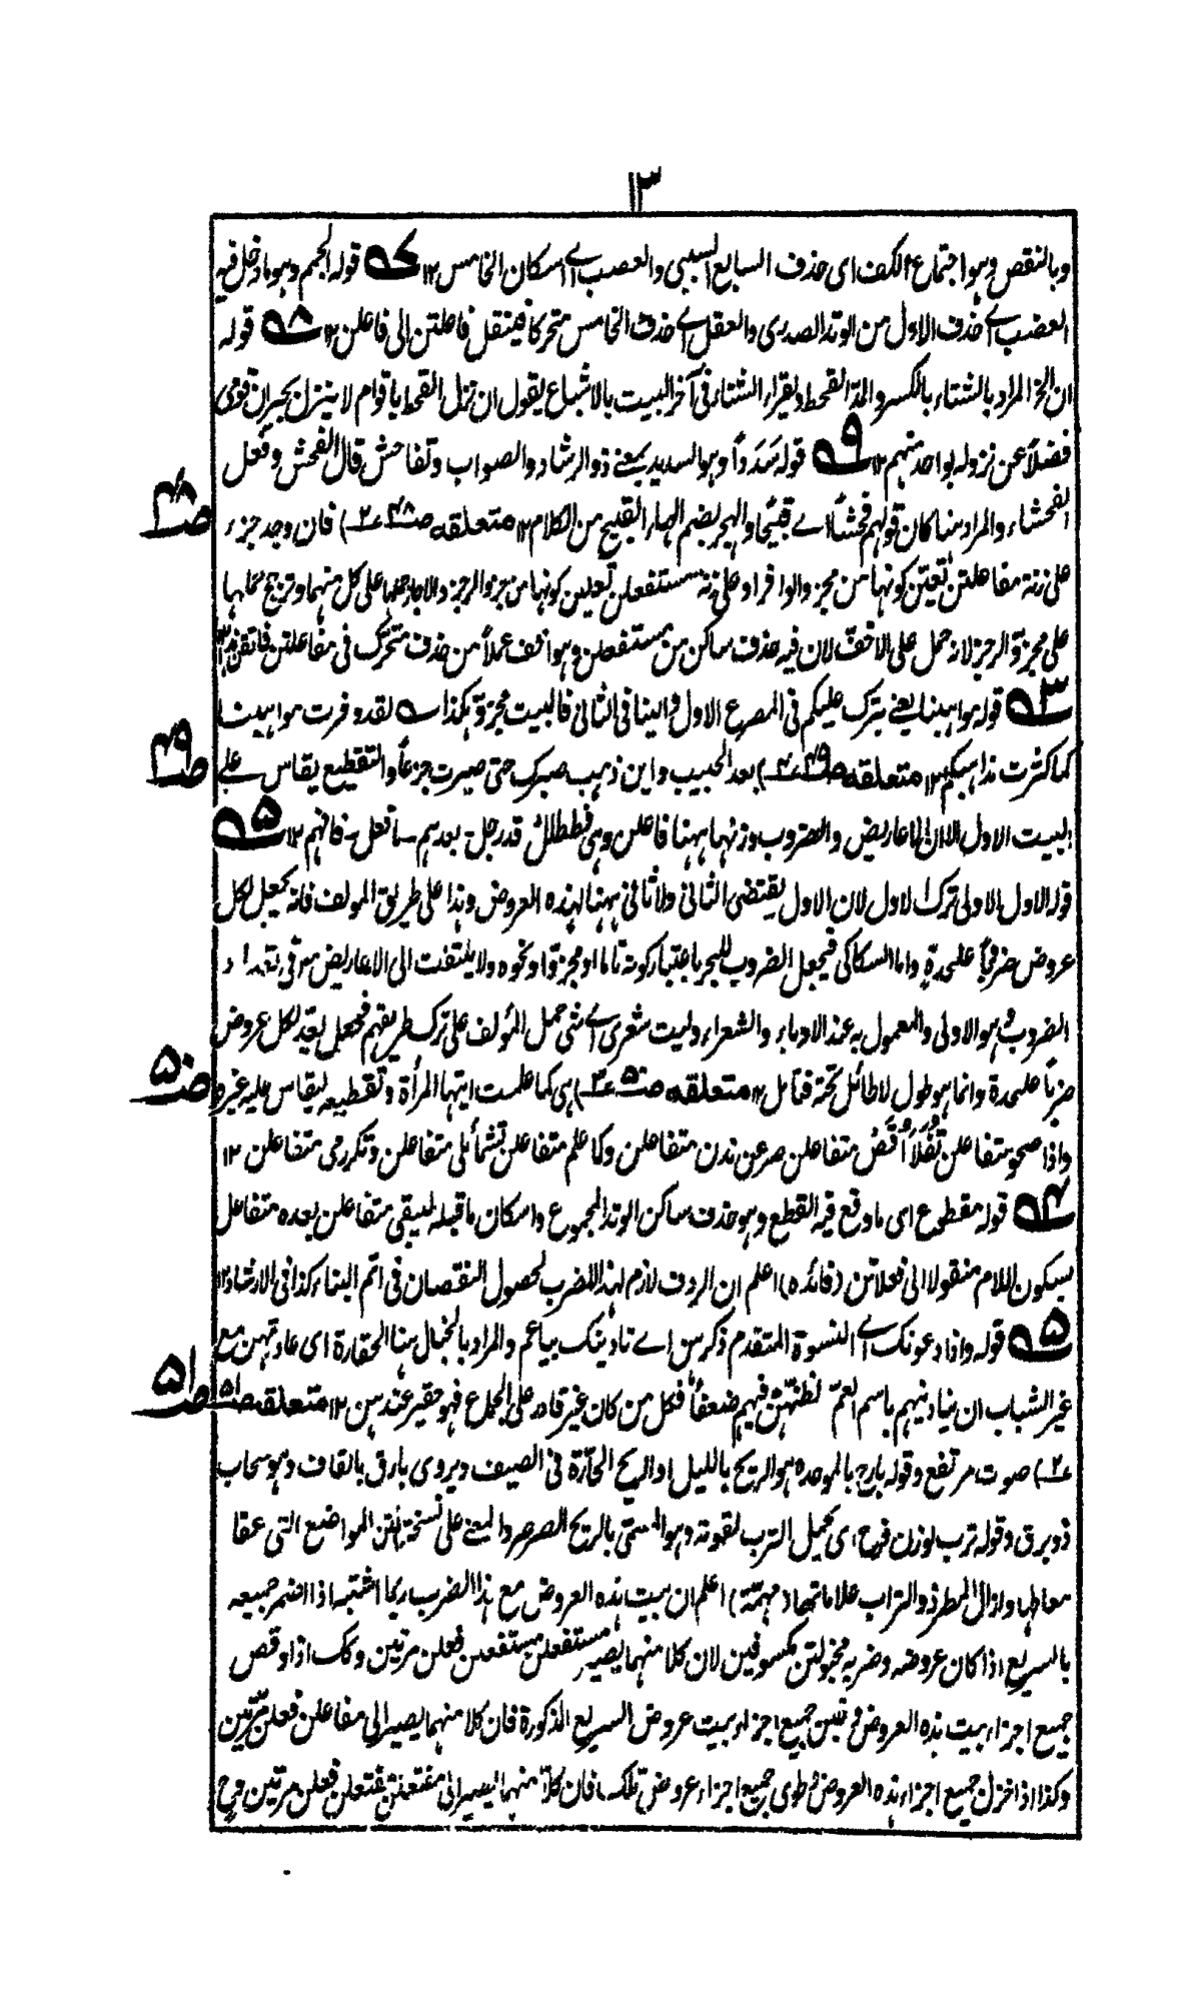 ١٣
وبالنقص وهو اجتماع الكف اى حذف السابع السببى والعصب اے اسكان الخامس ١٢ ٧ قوله الجمم وهو ما دخل فيه
العضب اے حذف الاول من الوتد الصدرى والعقل اے حذف الخامس متحركا فينقل فاعلتن الى فاعلن ١٢ ٨ قوله
ان الخ المراد بالشتاء بالكسر والمد القحط ويقراء الشتاء فى آخر البيت بالاشباع يقول ان نزل القحط يا قوام لا ينزل بجيران قومى
فضلا عن نزوله بواحد منهم ١٢ ٩ قوله سَدَداً وهو السديد بمعنے ذو الرشاد والصواب وتفاحش قال الفحش وفعل
الفحشاء والمراد هنا كان قولهم فحشاً اے قبيحا والهجر بضم الهاء القبيح من الكلام ١٢ متعلقه صـ٤٨ عـ٢) فان وجد جزء
صـ٤٨
على زنة مفاعلتن تعين كونها من مجزو الوافر او على زنة مستفعلن تعين كونها من جزو الرجز والا جاز حملها على كل منهما وترجح حملها
على مجزوّ الرجز لانه حمل على الاخفّ لان فيه حذف ساكن من مستفعلن وهو اخف عملاً من حذف متحرّك فى مفاعلتن فاتقن هذا ١٢
٣ قوله مواهبنا يعنے يترك عليكم فى المصرع الاول والينا فى الثانى فالبيت مجزوّ هكذا ے لقد وفرت مواهبنا
كما كثرت مذاهبكم ١٢ متعلقه صـ٤٩ عـ٣) بعد الحبيب واين ذهب صبرك حتى صيرت جزعاً والتقطيع يقاس علے
صـ٤٩
البيت الاول الا ان الاعاريض والضروب وزنهما ههنا فاعلن وهى فططلل قدرجل بعدهم ساتعل فافهم ١٢ ٥
قوله الاول الاولى ترك الاول لان الاول يقتضى الثانى ولا ثانى ههنا لهذه العروض وهذا على طريق المولف فانه يجعل لكل
عروض ضرباً علٰحدةٍ واما السكاكى فيجعل الضروب للبحر باعتبار كونه تاما او مجزوّا ونحوه ولا يلتفت الى الاعاريض فى تعداد
الضروب وهو الاولى والمعمول به عند الادباء والشعراء وليت شعرى اے شئ حمل المؤلف على ترك طريقهم فجعل يعد لكل عروض
ضرباً علحدة وانما هو طول لا طائل تحته فتأمل ١٢ متعلقه صـ٥٠ عـ٣) اى كما علمت ايتها المرأة وتقطيعه ليقاس عليه غيره
صـ٥٠
واذا صحو متفاعلن تفَلَا اُقَصّ متفاعلن صرعن ندن متفاعلن وكما علم متفاعلن تشمائلى متفاعلن وتكررمى متفاعلن ١٢
٤ قوله مقطوع اى ما وقع فيه القطع وهو حذف ساكن الوتد المجموع واسكان ما قبله ليبقى متفاعلن بعده متفاعل
بسكون للام منقولا الى فعلاتن (فائده) اعلم ان الردف لازم لهذا الضرب لحصول النقصان فى اتم البناء كذا فى الارشاد ١٢
٥ قوله واذا دعونك اے النسوة المتقدم ذكرهن اے ناديتك بياعم والمراد بالخبال هنا الحقارة اى عادتهن مع
غير الشباب ان يناديهم باسم العمّ لظنهن فيهم ضعفاً فكل من كان غير قادر على الجماع فهو حقير عندهن ١٢ متعلقه صـ٥١
صـ٥١
عـ٢) صوت مرتفع وقوله بارح بالموحده هو الريح بالليل او الريح الحارّة فى الصيف ويروى بارق بالقاف وهو سحاب
ذو برق وقوله ترب بوزن فرح اى يحمل الترب لقوته وهو المسمى بالريح الصرصر والمعنے على نسخة المتن المواضع التى عفا
معالمها وازال المطر ذو التراب علاماتها (مهمّة) اعلم ان بيت هذه العروض مع هذا الضرب ربما اشتبه اذا اضمر جميعه
بالسريع اذا كان عروضه وضربه مخبولتين مكسوفين لان كلا منهما يصير مستفعلن مستفعلن فعلن مرتين وكك اذا وقص
جميع اجزاء بيت هذه العروض وخبن جميع اجزاء بيت عروض السريع المذكورة فان كلا منهما يصير الى مفاعلن فعلن مرّتين
وكذا اذا اخزل جميع اجزاء هذه العروض وطوى جميع اجزاء عروض تلك فان كلاً منهما يصير الى مفتعلن مفتعلن فعلن مرتين وح